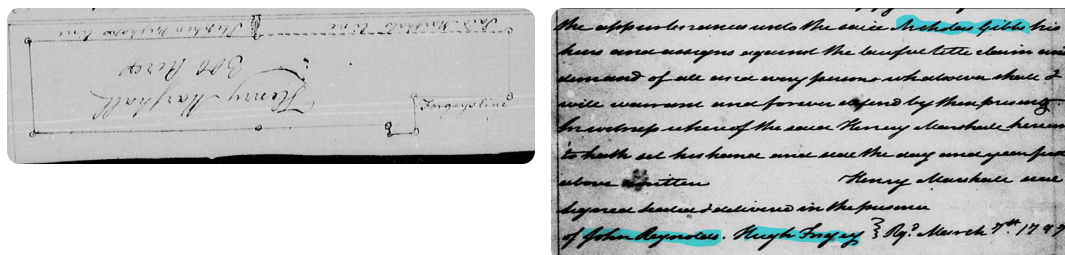 Jas Marshals line
Stephen Bishops line
300 Acres
Henry Marshall
Forgeys line
the appurtenances unto the said Nicholas Gibbs his
heirs and assigns against the lawful title claim and
demand of all and every person whatsoever shall &
will warrant and forever defend by these presents
In witness whereof the said Henry Marshall hereun
to hath set his hand and seal the day and year first
above written Henry Marshall seal
signed sealed & delivered in the presence
of John Reynolds. Hugh Forgey } Rgd. March 7th. 1797